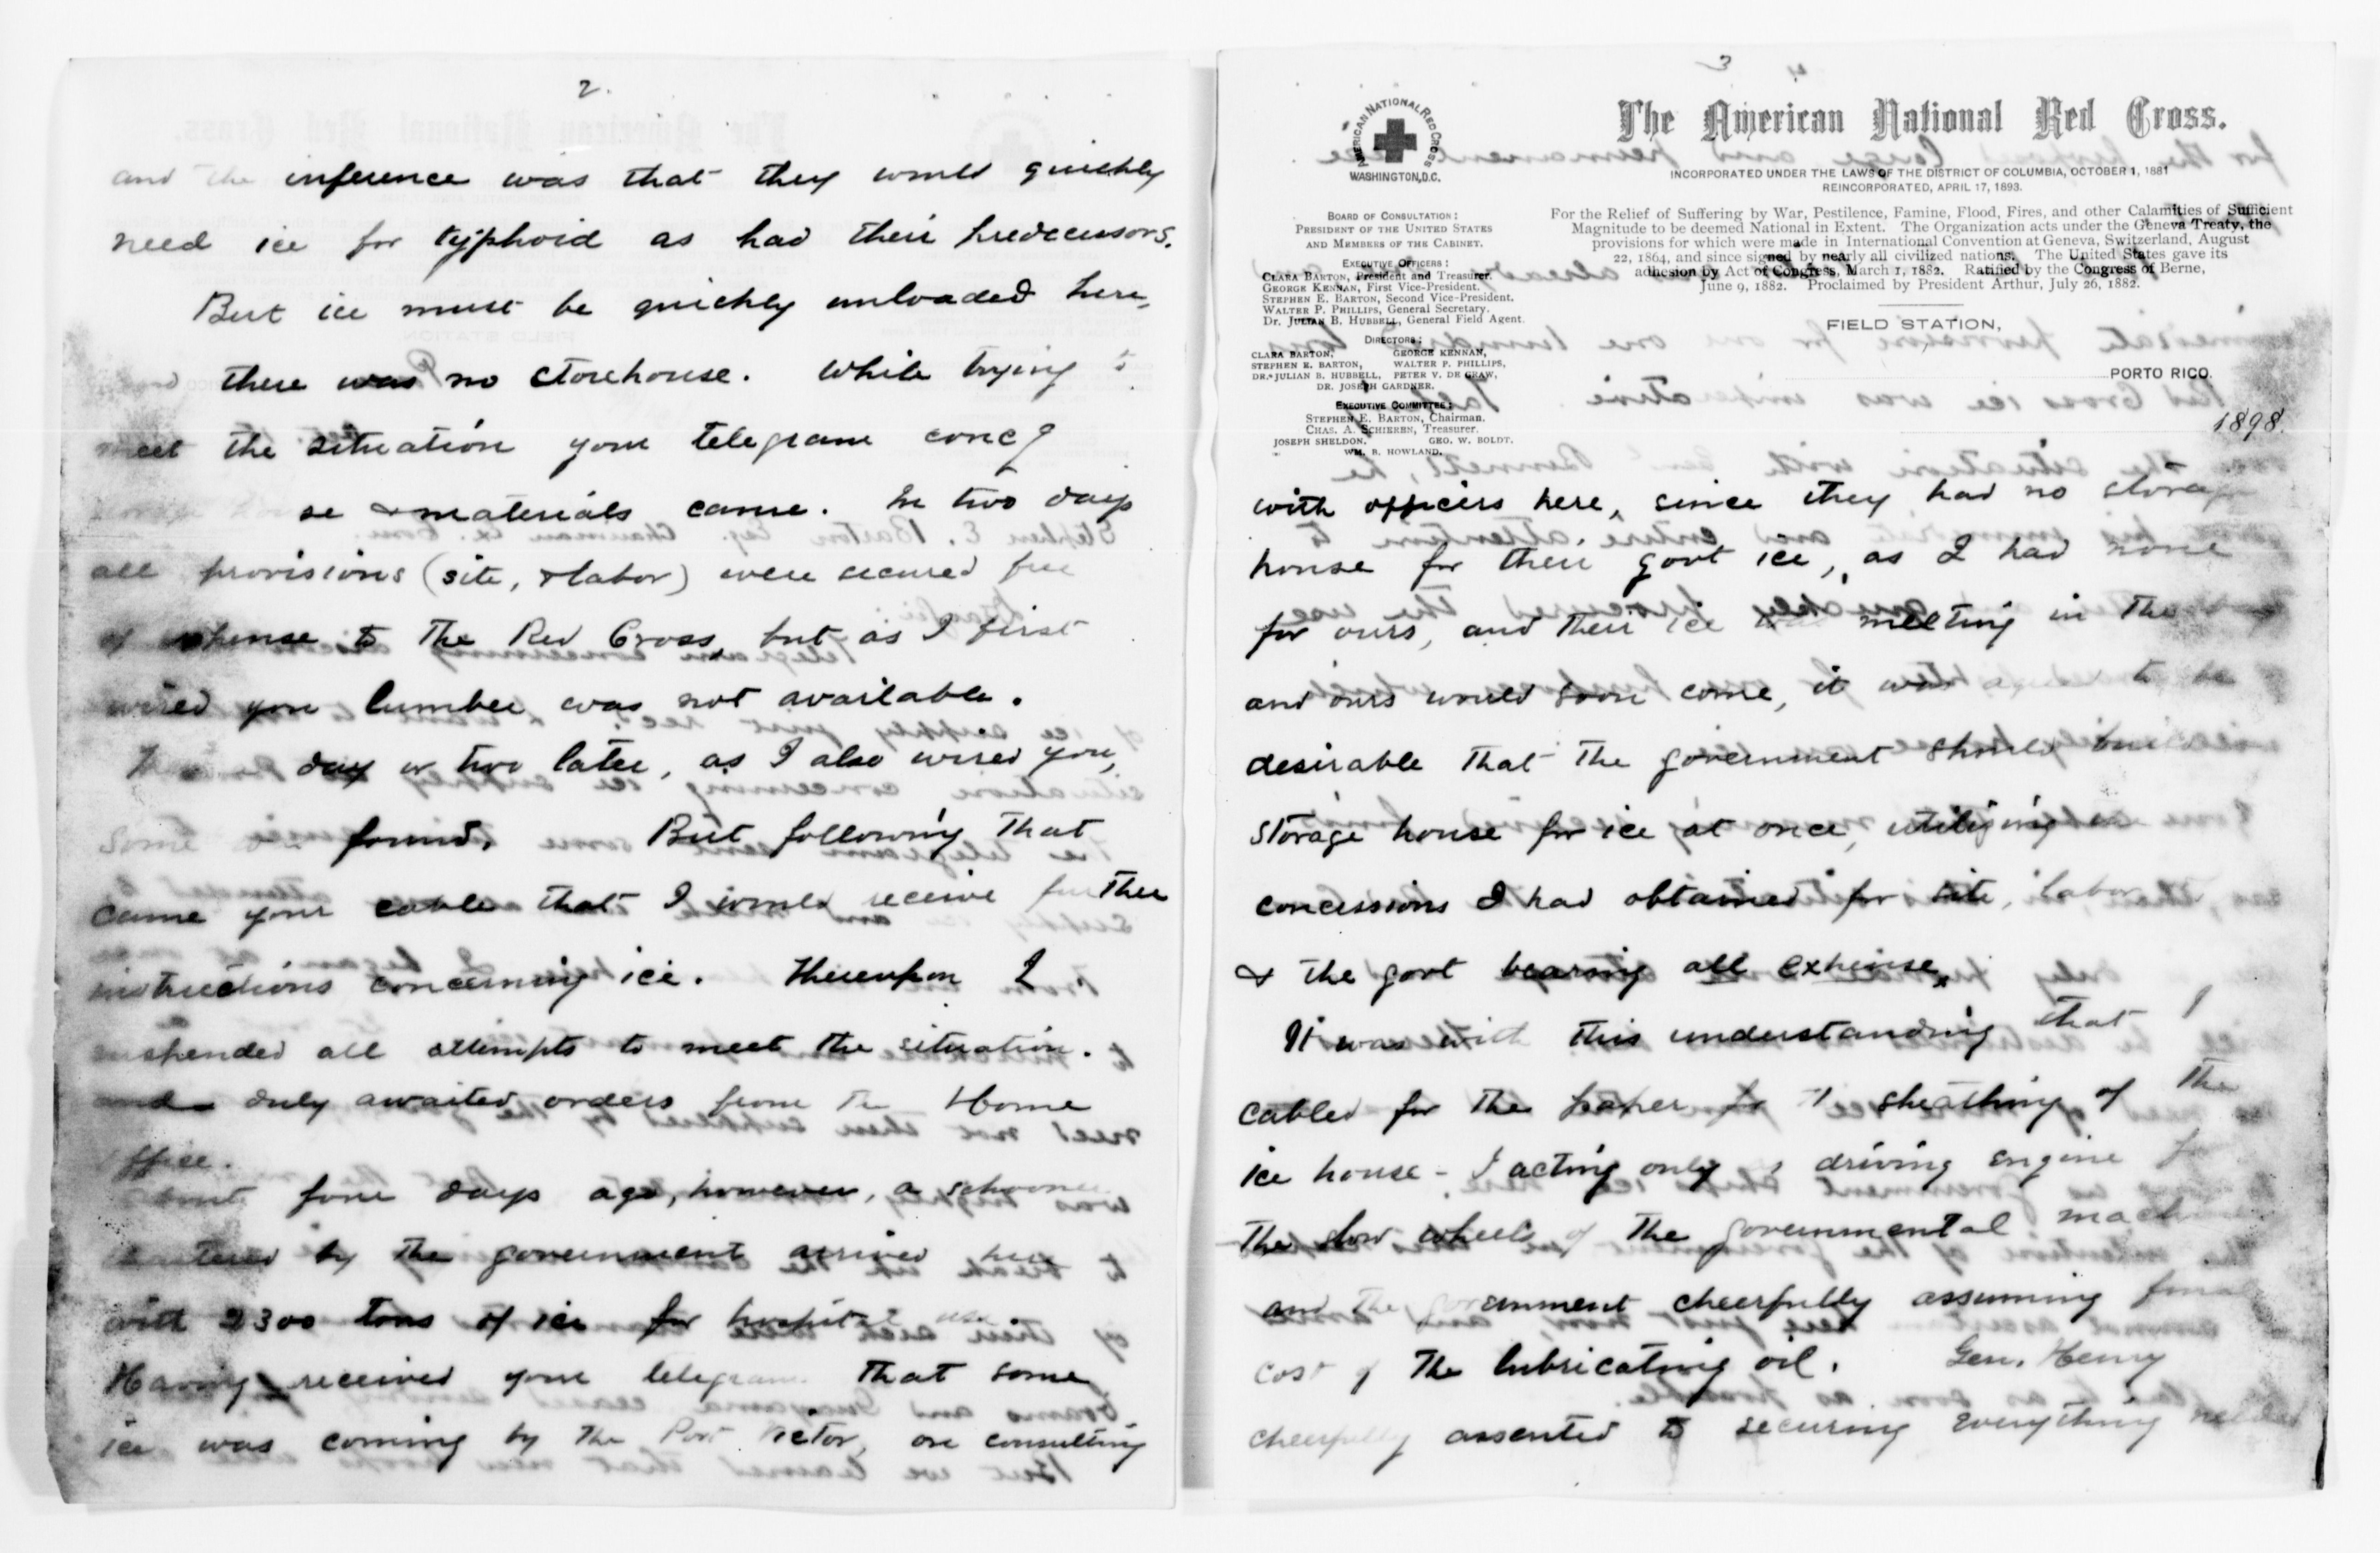 2.
and the inference was that they would quickly
need ice for typhoid as had their predecessors.
But ice must be quickly unloaded here,
and there was no storehouse. While trying to
meet the situation your telegram concg
se & materials came. In two days
all provisions (site, & labor) were secured free
of expense to the Red Cross, but as I first
wired you lumber was not available.
day or two later, as I also wired you,
some found. But following that
came your cable that I would receive further
instructions concerning ice. Thereupon I
suspended all attempts to meet the situation.
and only awaited orders from the Home
office.
About four days ago, however, a schooner
chartered by the government arrived here
with 2300 tons of ice for hospital use
Having received your telegram that some
ice was coming by the Port Victor, on consulting
3
AMERICAN NATIONAL RED CROSS
WASHINGTON, D.C.
The American National Red Cross.
INCORPORATED UNDER THE LAWS OF THE DISTRICT OF COLUMBIA, OCTOBER 1, 1881
REINCORPORATED, APRIL 17, 1893.
For the Relief of Suffering by War, Pestilence, Famine, Flood, Fires, and other Calamities of Sufficient
Magnitude to be deemed National in Extent. The Organization acts under the Geneva Treaty, the
provisions for which were made in International Convention at Geneva, Switzerland, August
22, 1864, and since signed by nearly all civilized nations. The United States gave its
adhesion by Act of Congress, March 1, 1882. Ratified by the Congress of Berne,
June 9, 1882. Proclaimed by President Arthur, July 26, 1882.
BOARD OF CONSULTATION:
PRESIDENT OF THE UNITED STATES
AND MEMBERS OF THE CABINET.
EXECUTIVE OFFICERS:
CLARA BARTON, President and Treasurer.
GEORGE KENNAN, First Vice-President.
STEPHEN E. BARTON, Second Vice-President.
WALTER P. PHILLIPS, General Secretary.
Dr. JULIAN B. HUBBELL, General Field Agent.
DIRECTORS:
CLARA BARTON, GEORGE KENNAN,
STEPHEN E. BARTON, WALTER P. PHILLIPS,
DR. JULIAN B. HUBBELL, PETER V. DE GRAW,
DR. JOSEPH GARDNER.
EXECUTIVE COMMITTEE:
STEPHEN E. BARTON, Chairman.
CHAS. A. SCHIEREN, Treasurer.
JOSEPH SHELDON. GEO. W. BOLDT.
WM. B. HOWLAND.
FIELD STATION,
PORTO RICO.
1898.
with officers here, since they had no storage
house for their govt ice, as I had none
for ours, and their ice was melting in the
and ours would soon come, it was agreed to be
desirable that the government should build
storage house for ice at once, utilizing
concessions I had obtained for site, labor
& the govt bearing all expense.
It was with this understanding that I
cabled for the paper for sheathing of the
ice house - I acting only driving engine
the slow wheels of the governmental
and the government cheerfully assuming
cost of the lubricating oil. Gen. Henry
cheerfully assented to securing everything needed